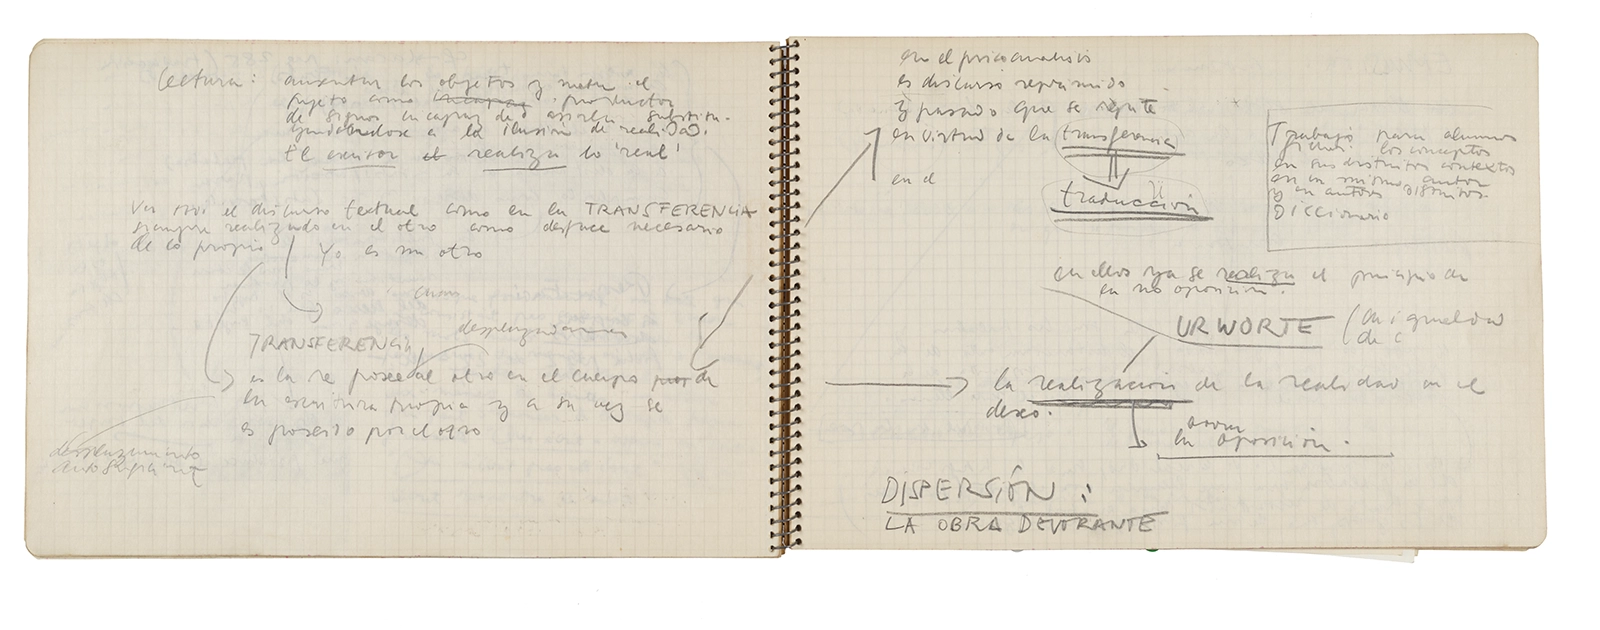 Lectura: aumentar los objetos y meter el
sujeto como productor
de signos incapaz de substitu-
a la ilusión de realidad.
El escritor realiza lo 'real'
Ver el discurso textual como en la TRANSFERENCIA
siempre realizado en el otro como necesario
de lo propio
Yo es un otro
TRANSFERENCIA
desplazadamente
es la re posee al otro en el cuerpo de
la escritura propia y a su vez se
es poseído por el otro
desplazamiento
en el psicoanálisis
es discurso reprimido
y pasado que se repite
en virtud de la transferencia
en el
traducción
Trabajo para alumnos
los conceptos
en sus distintos contextos
en un mismo autor
y en autores distintos.
Diccionario
en ellos ya se realiza el principio de
la no oposición.
URWORTE (la igualdad
de c
la realización de la realidad en el
deseo.
la oposición.
DISPERSIÓN:
LA OBRA DEVORANTE